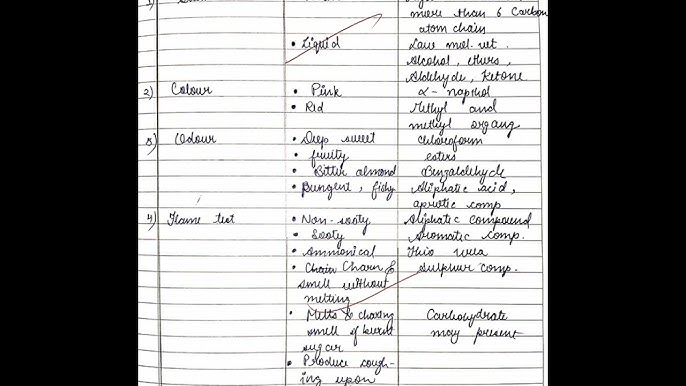 more than 6 Carbon
atom chain
• Liquid Low mol. wt.
Alcohol, ethers,
Aldehyde, Ketone
2) Colour • Pink α- napthol
• Red Methyl and
methyl organg
3) Odour • Deep sweet chloroform
• fruity esters
• Bitter almond Benzaldehyde
• Pungent, fishy Aliphatic acid,
comp
4) Flame test • Non-sooty Aliphatic Compound
• Sooty Aromatic comp.
• Ammonical Thio urea
• Chain Charn & Sulphur comp.
smell without
melting
• Melts & charing Carbohydrate
smell of burnt may present
sugar
• Produce cough-
ing upon